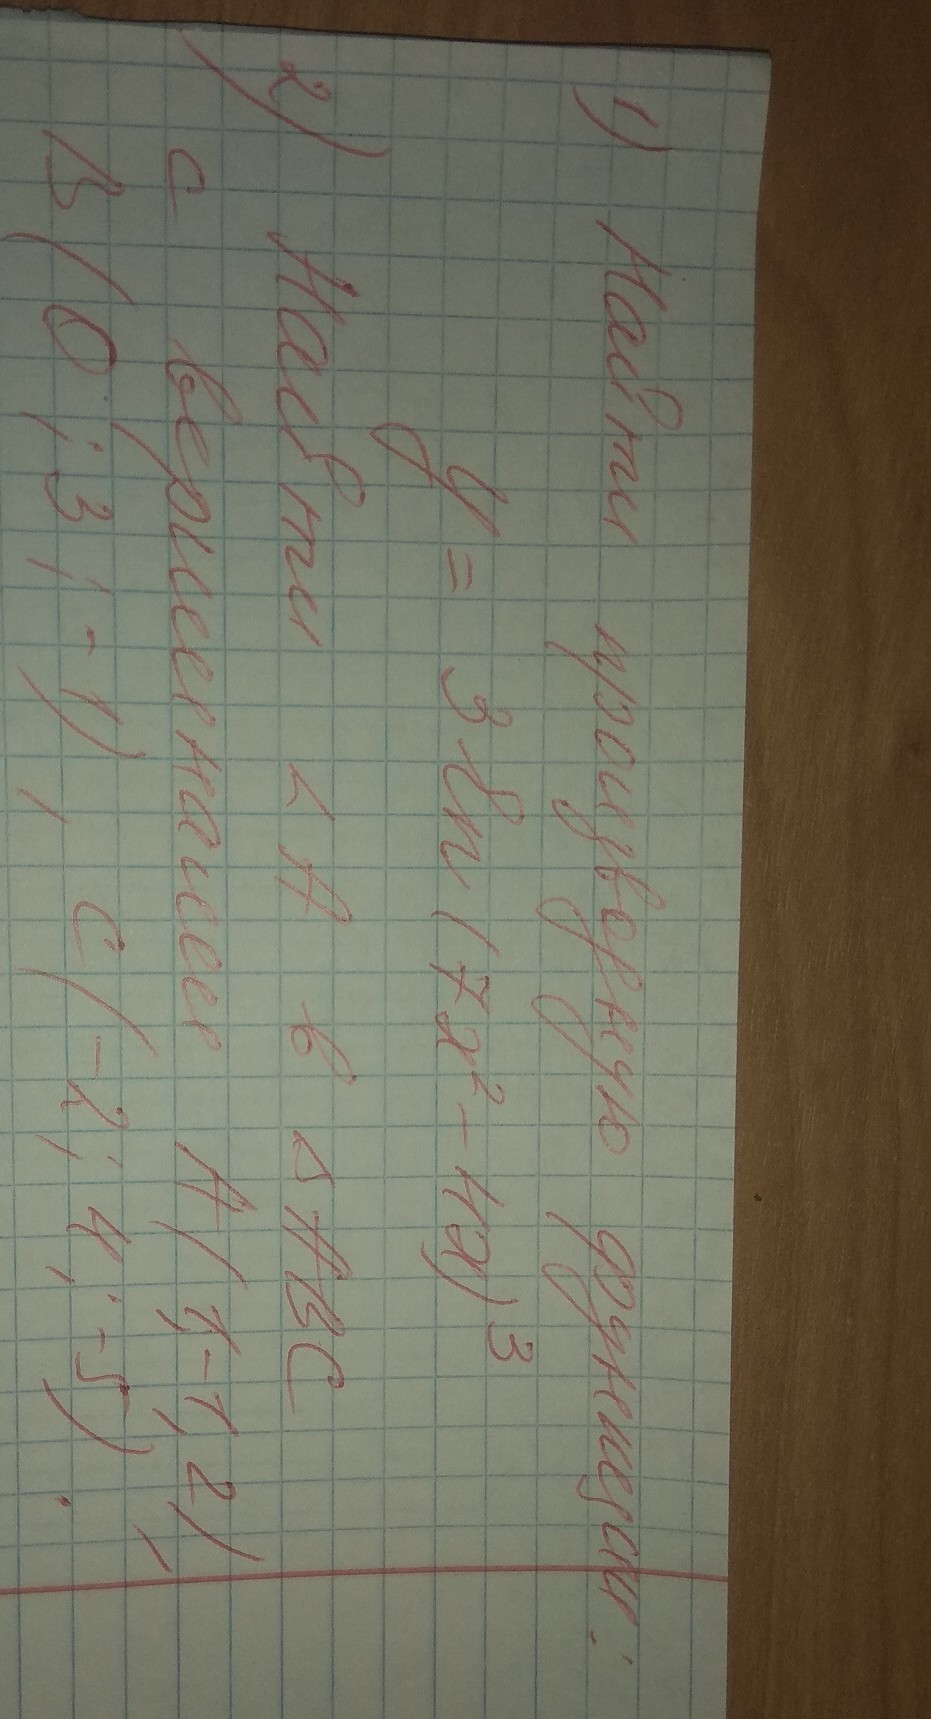 1) Найти производную функции:
y = 3 ln (7x² - 4x)³
2) Найти ∠A в △ABC
с вершинами A(1;-1;2),
B(0;3;-1), C(-2;4;-5).